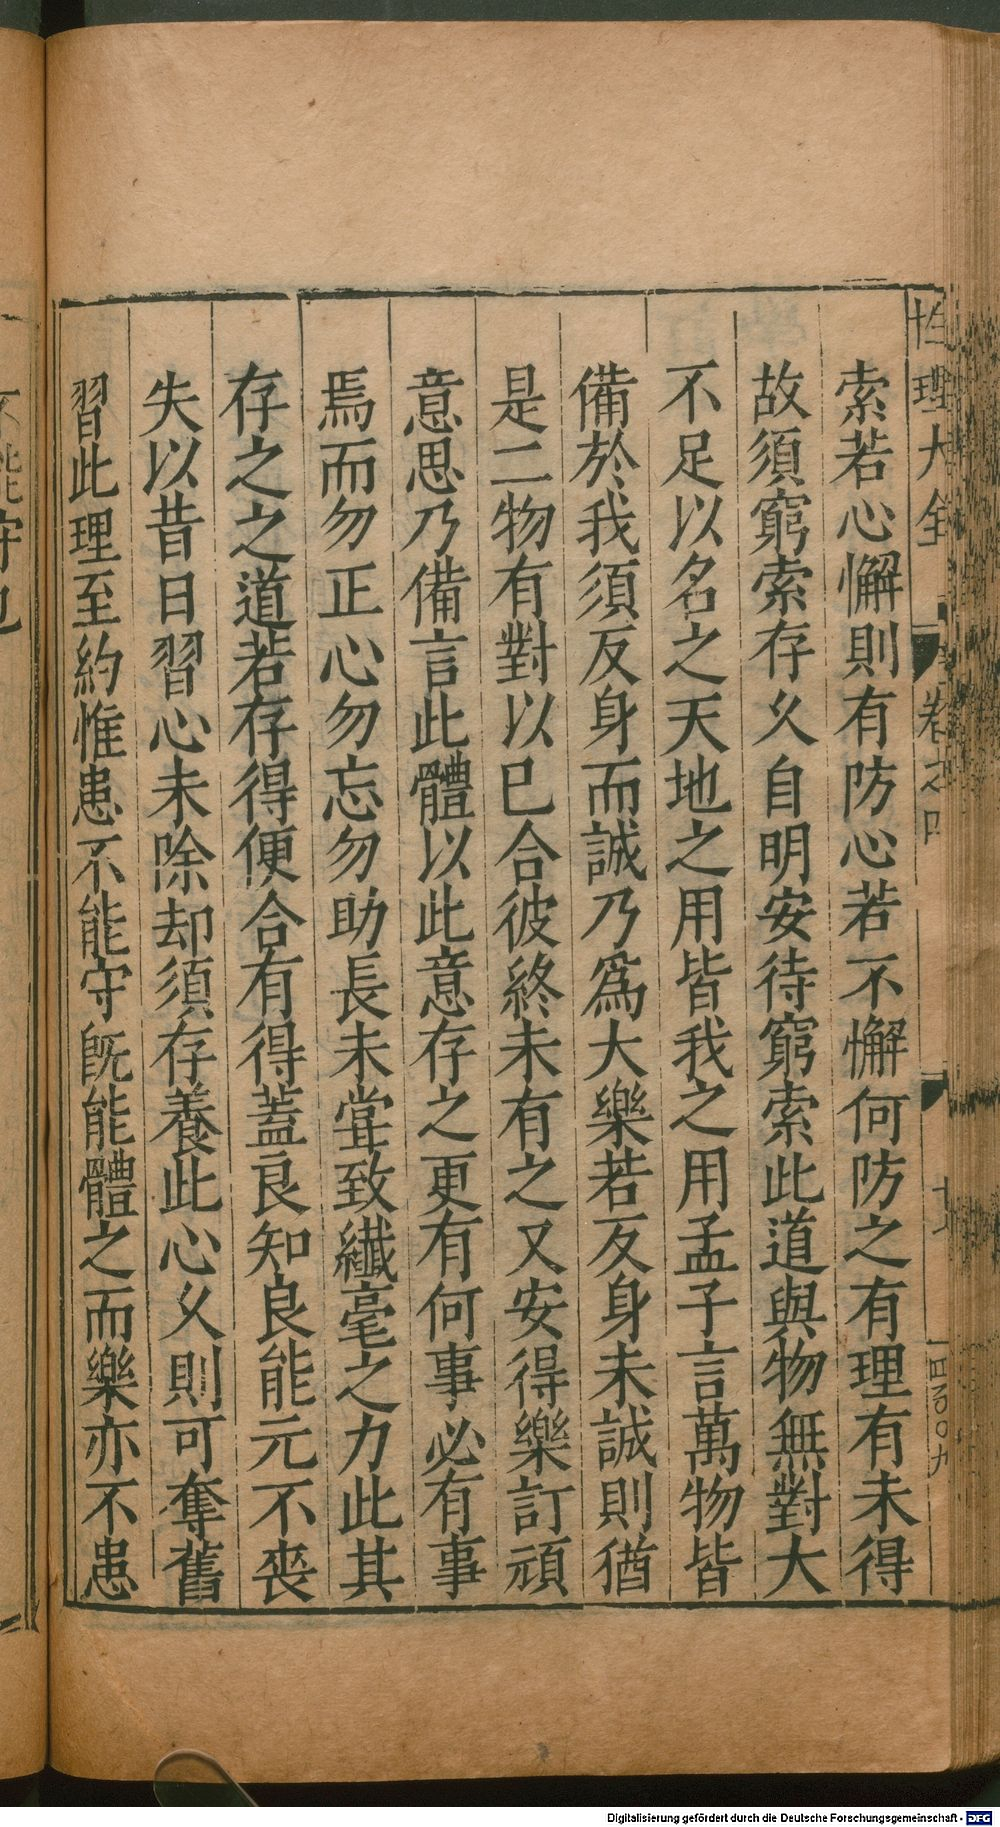 性理大全 卷之四
索若心懈則有防心若不懈何防之有理有未得
故須窮索存久自明安待窮索此道與物無對大
不足以名之天地之用皆我之用孟子言萬物皆
備於我須反身而誠乃爲大樂若反身未誠則猶
是二物有對以巳合彼終未有之又安得樂訂頑
意思乃備言此體以此意存之更有何事必有事
焉而勿正心勿忘勿助長未甞致纖毫之力此其
存之之道若存得便合有得蓋良知良能元不丧
失以昔日習心未除却須存養此心久則可奪舊
習此理至約惟患不能守旣能體之而樂亦不患
不能守也
Digitalisierung gefördert durch die Deutsche Forschungsgemeinschaft - DFG